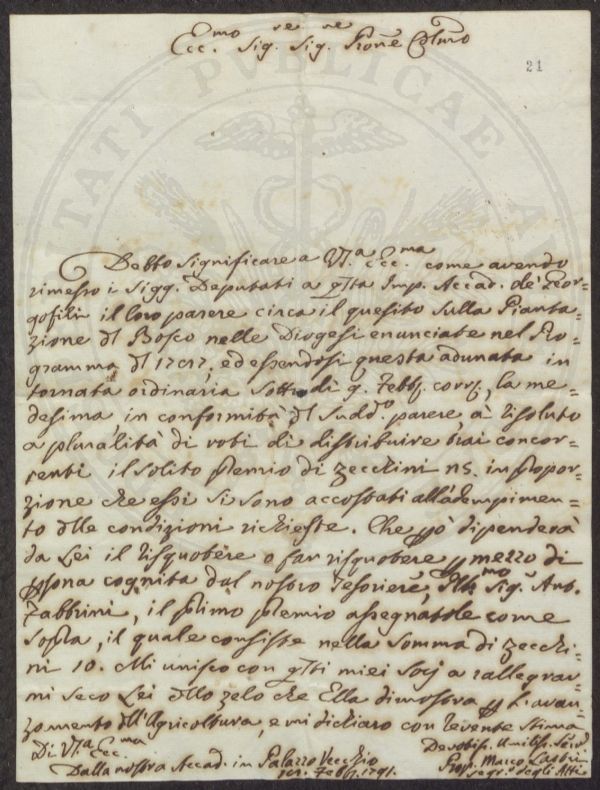 Ecc.mo Sig.re Sig.re Prone Colmo
21
UTILITATI PUBLICAE
Debbo significare a V.ra Ecc.ma come avendo
rimesso i Sigg. Deputati a qta Imp. Accad. de' Geor-
gofili il loro parere circa il quesito sulla Pianta-
zione dl Bosco nelle Diogesi enunciate nel Pro-
gramma dl, ed essendosi questa adunata in
tornata ordinaria sotto di 9. Febb. corr., la me-
desima, in conformità dl sudd.o parere, à risoluto
a pluralità di voti di distribuire trai concor-
renti il solito premio di Zecchini in propor-
zione che essi si sono accostati all'adempimen-
to dlle condizioni richieste. Che pò dipenderà
da Lei il risquotere o far risquotere p mezzo di
psona cognita dal nostro Tesoriere, Ill.mo Sig. Ant.
Fabbrini, il primo premio assegnatole come
sopra, il quale consiste nella somma di Zecchi-
ni 10. Mi unisco con qsti miei Socj a rallegrar-
mi seco Lei dllo zelo che Ella dimostra p l'avan-
zamento dll'Agricoltura, e mi dichiaro con revente stima
Di V.ra Ecc.ma
Devotiss. Umiliss. Serv.
Dalla nostra Accad. in Palazzo Vecchio
Prop. Marco Lastri
Febb. 1791.
Segr. degli Atti